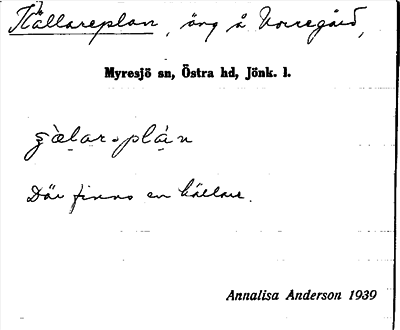 Källareplan, äng å Norregård,
Myresjö sn, Östra hd, Jönk. l.
ʒæ̀lar-plán
Där finns en källare.
Annalisa Anderson 1939